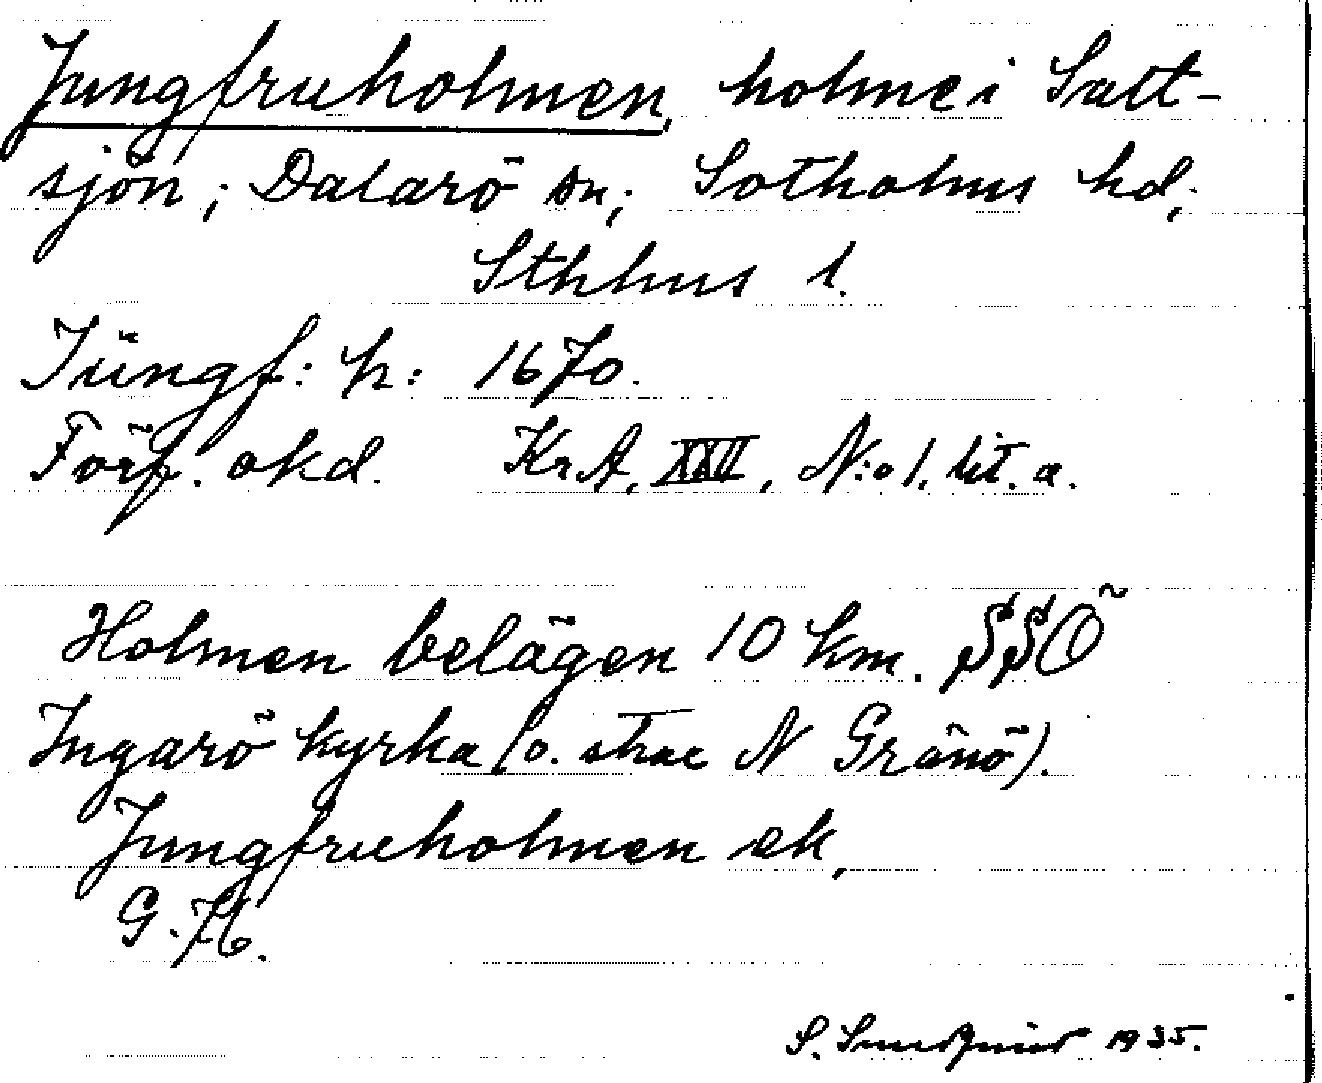 Jungfruholmen, holme i Salt-
sjön; Dalarö sn; Sotholms hd;
Sthlms l.
Jüngf: h: 1670.
Förf. okd. KrA, XXII, N:o 1. lit. a.
Holmen belägen 10 km. SSÖ
Ingarö kyrka (o. strax N Gränö).
Jungfruholmen ek,
G.K.
S. 1935.